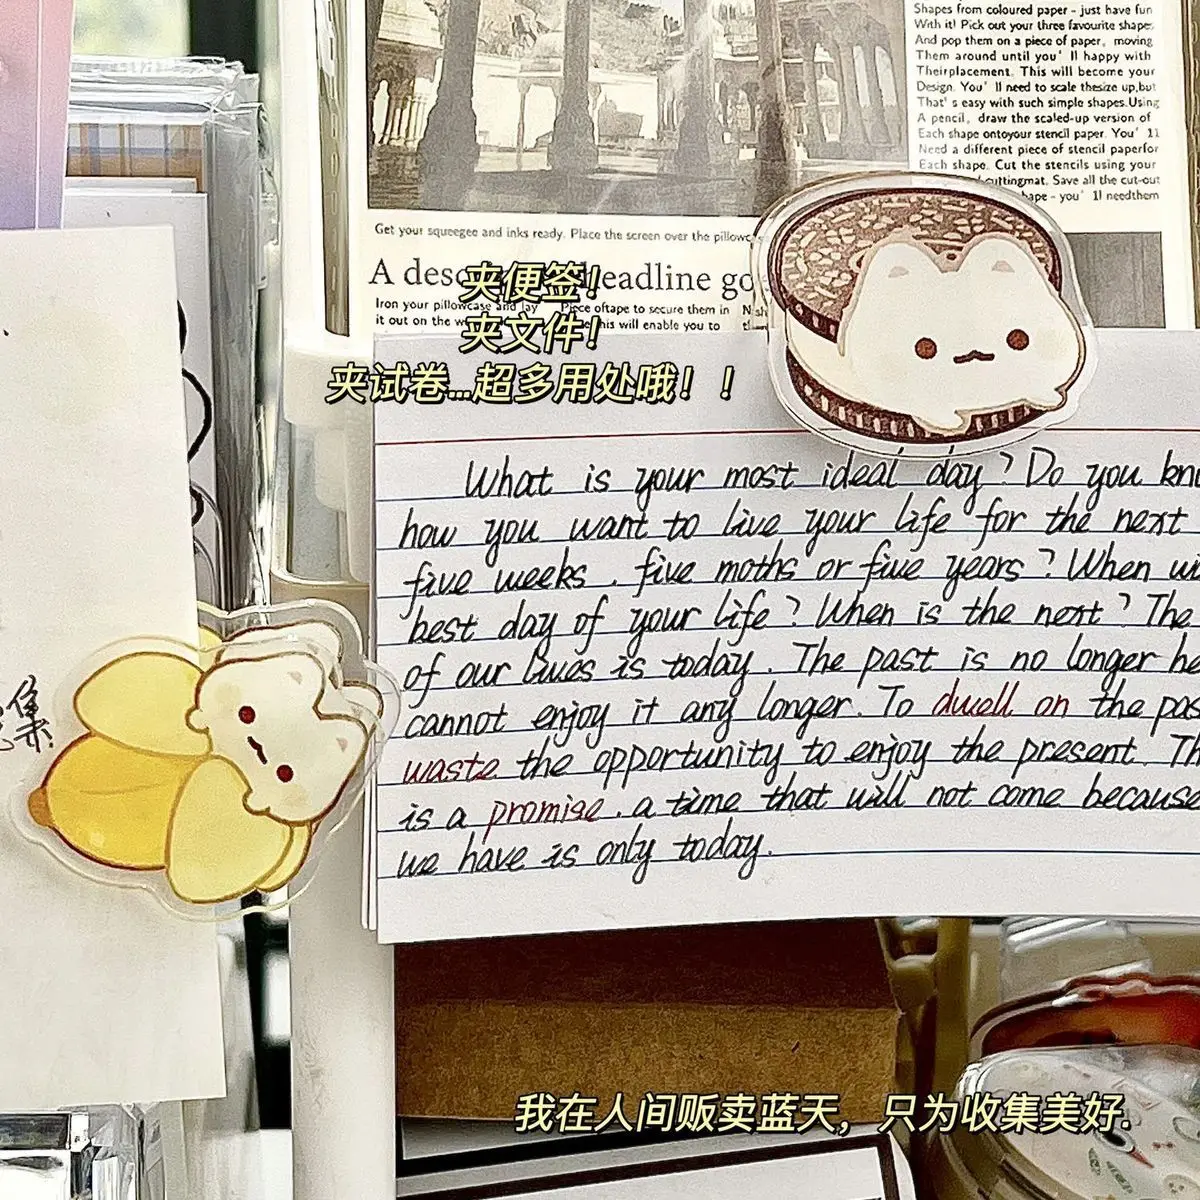 Shapes from coloured paper - just have fun
With it! Pick out your three favourite shape,
And pop them on a piece of paper, moving
Them around until you' ll happy with
Theirplacement. This will become your
Design. You' ll need to scale thesize up,but
That' s easy with such simple shapes.Using
A pencil, draw the scaled-up version of
Each shape ontoyour stencil paper. You' ll
Need a different piece of stencil paperfor
Each shape. Cut the stencils using your
cuttingmat. Save all the cut-out
hape - you' ll needthem
Get your squeegee and inks ready. Place the screen over the pillowc
A desc eadline go
Iron your pillowcase and lay
it out on the w
Piece oftape to secure them in
his will enable you to
夹便签！
夹文件！
夹试卷...超多用处哦！！
What is your most ideal day? Do you kn
how you want to live your life for the next
five weeks. five moths or five years? When w
best day of your life? When is the next? The
of our lives is today. The past is no longer he
cannot enjoy it any longer. To dwell on the pas
waste the opportunity to enjoy the present. Th
is a promise. a time that will not come because
we have is only today.
集
我在人间贩卖蓝天，只为收集美好.